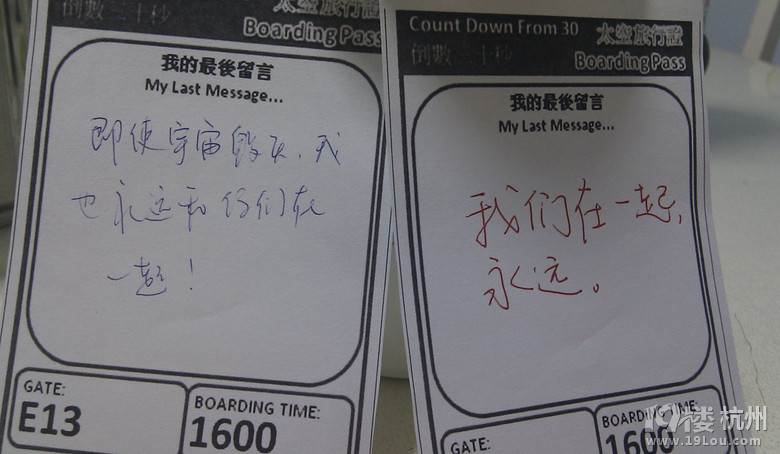 倒數三十秒
太空旅行證
Boarding Pass
我的最後留言
My Last Message...
即使宇宙毁灭,我
也永远和你们在
一起!
GATE:
E13
BOARDING TIME:
1600
Count Down From 30
太空旅行證
倒數三十秒
Boarding Pass
我的最後留言
My Last Message...
我们在一起,
永远。
GATE:
BOARDING TIME:
1600
19楼 杭州
www.19Lou.com